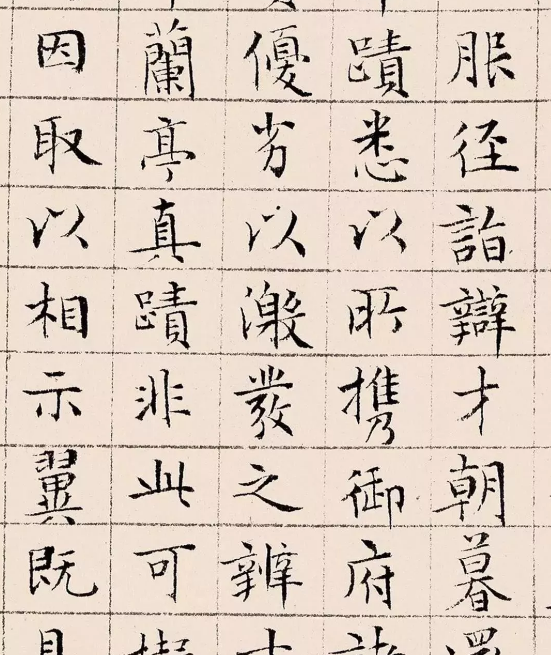 服徑詣辯才朝暮
蹟悉以所携御府
優劣以激發之辨
蘭亭真蹟非此可
因取以相示翼既